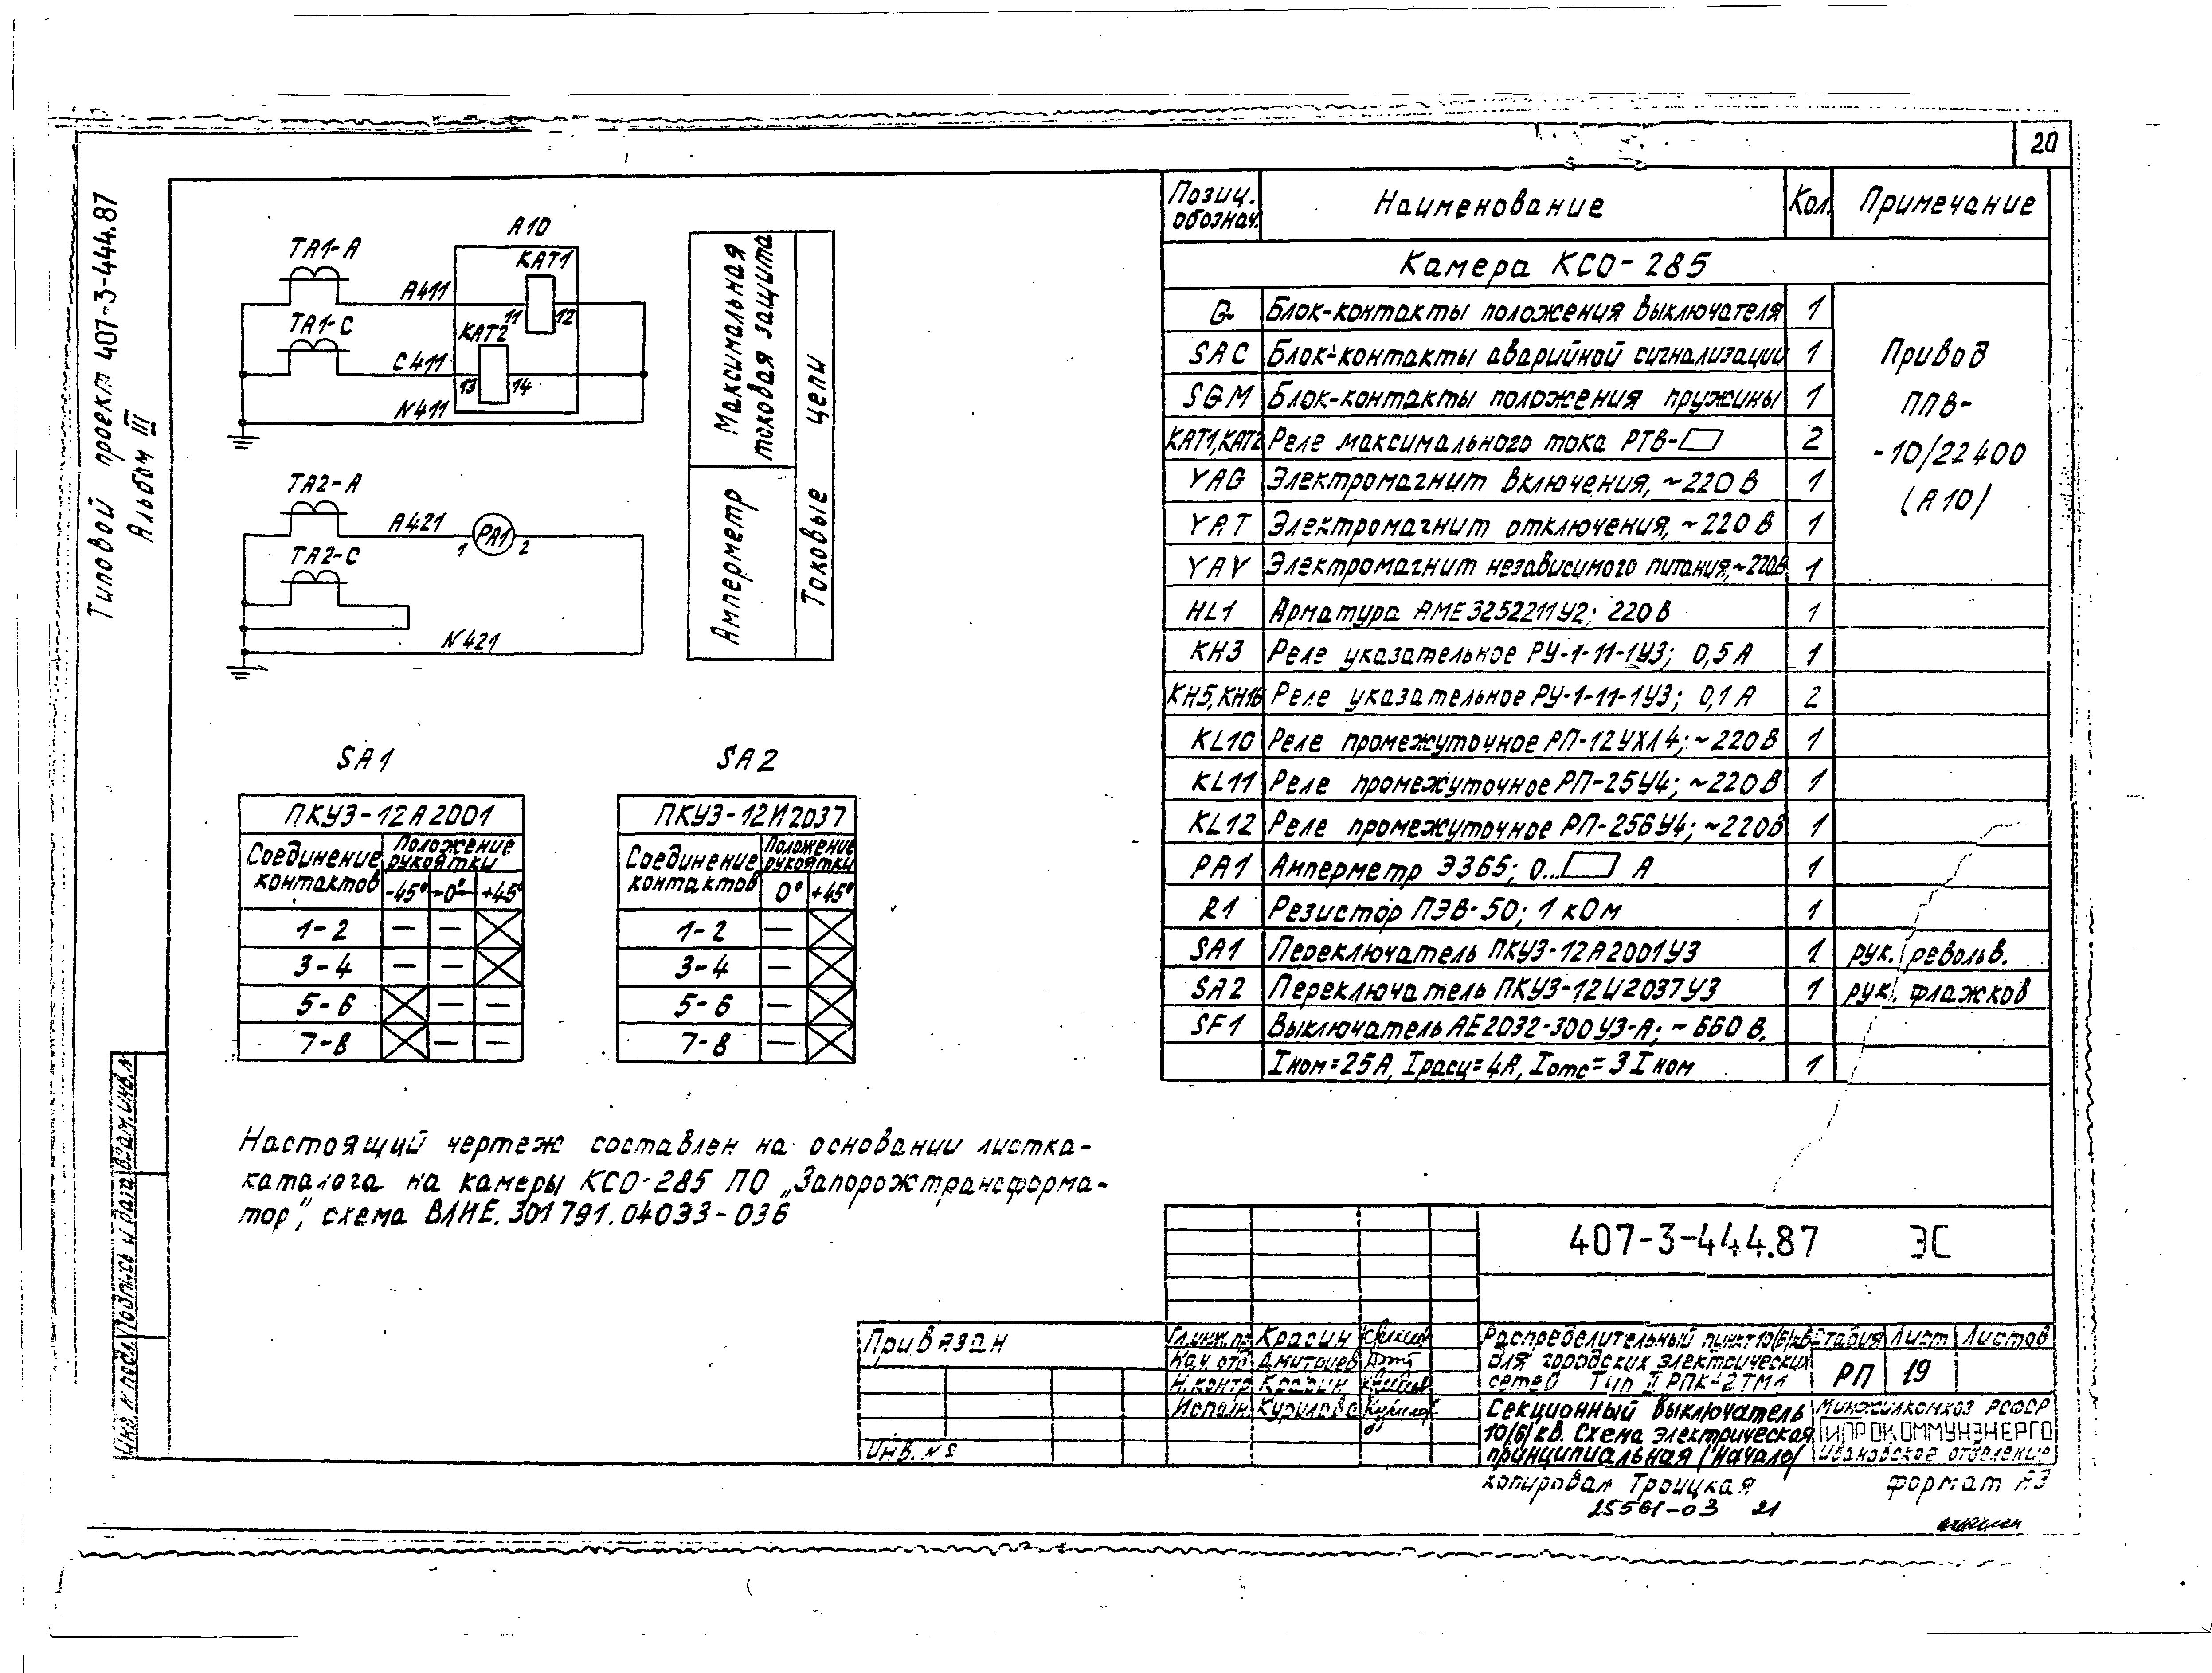 20
Типовой проект 407-3-444.87
Альбом III
ТА1-А
А10
КАТ1
А411
11
12
ТА1-С
КАТ2
С411
13
14
N411
ТА2-А
А421
1
РА1
2
ТА2-С
N421
Максимальная
токовая защита
Амперметр
Токовые цепи
SA1
ПКУ3-12А2001
Соединение контактов
Положение рукоятки
-45° -0°- +45°
1-2 — —
3-4 — —
5-6 — —
7-8 — —
SA2
ПКУ3-12И2037
Соединение контактов
Положение рукоятки
0° +45°
1-2 —
3-4 —
5-6 —
7-8 —
Настоящий чертеж составлен на основании листка-
каталога на камеры КСО-285 ПО „Запорожтрансформа-
тор", схема ВЛИЕ.301791.04033-036
Позиц. обознач. Наименование Кол. Примечание
Камера КСО-285
Q Блок-контакты положения выключателя 1
SAC Блок-контакты аварийной сигнализации 1
SQM Блок-контакты положения пружины 1
КАТ1,КАТ2 Реле максимального тока РТВ- 2
YAG Электромагнит включения, ~220В 1
YAT Электромагнит отключения, ~220В 1
YAV Электромагнит независимого питания, ~220В 1
Привод
ППВ-
-10/22400
(А10)
HL1 Арматура АМЕ3252211У2; 220В 1
КН3 Реле указательное РУ-1-11-1У3; 0,5А 1
КН5, КН16 Реле указательное РУ-1-11-1У3; 0,1А 2
KL10 Реле промежуточное РП-12УХЛ4; ~220В 1
KL11 Реле промежуточное РП-25У4; ~220В 1
KL12 Реле промежуточное РП-256У4; ~220В 1
РА1 Амперметр Э365; 0... А 1
R1 Резистор ПЭВ-50; 1 кОм 1
SA1 Переключатель ПКУ3-12А2001У3 1 рук. револьв.
SA2 Переключатель ПКУ3-12И2037У3 1 рук. флажков
SF1 Выключатель АЕ2032-300У3-А; ~660В.
Iном=25А, Iрасц=4А, Iотс=3Iном 1
407-3-444.87 ЭС
Привязан
Инв. №
Гл.инж.пр Красин
Нач. отд Дмитриев
Н.контр Красин
Исполн. Курилова
Распределительный пункт 10(6)кВ
для городских электрических
сетей Тип II РПК-2ТМ1
Стадия Лист Листов
РП 19
Секционный выключатель
10(6)кВ. Схема электрическая
принципиальная (начало)
Минжилкомхоз РСФСР
ГИПРОКОММУНЭНЕРГО
Ивановское отделение
копировал Троицкая
формат А3
25561-03 21
Инв. № подл. Подпись и дата Взам.инв.№